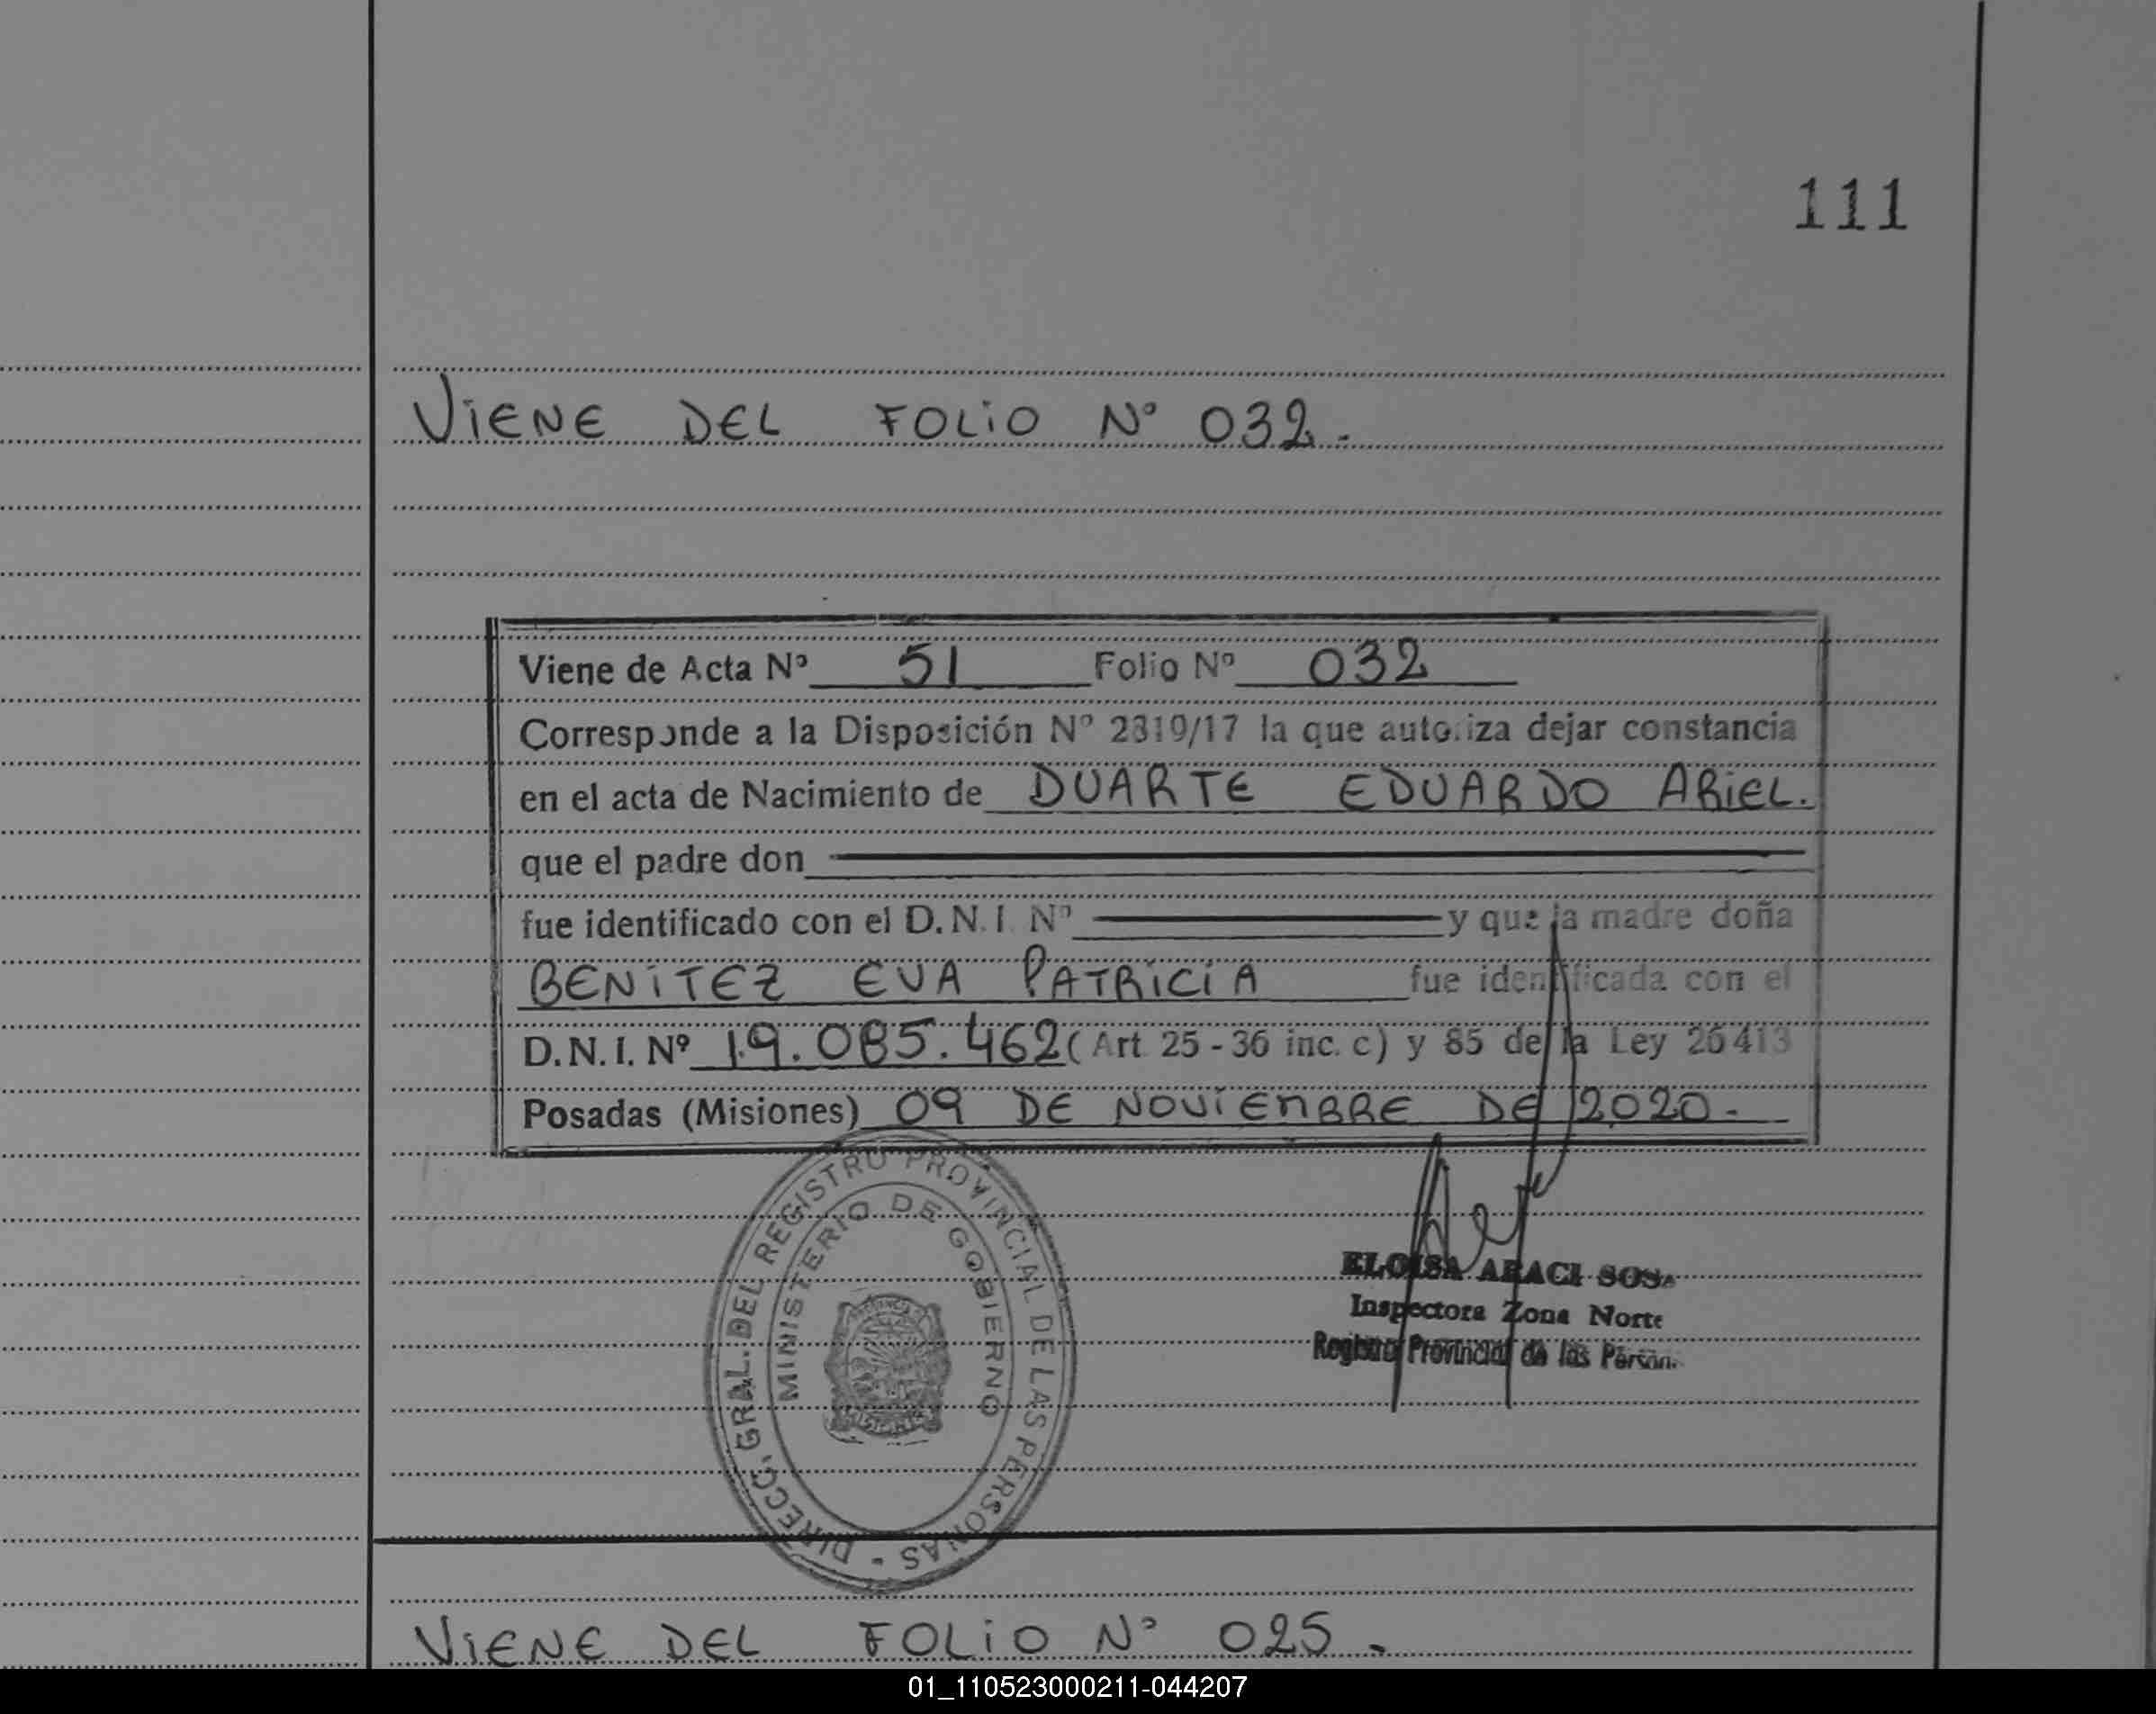 111
ViENE DEL FOLiO Nº 032.
Viene de Acta Nº 51 Folio Nº 032
Corresponde a la Disposición Nº 2319/17 la que autoriza dejar constancia
en el acta de Nacimiento de DUARTE EDUARDO ARiEL.
que el padre don
fue identificado con el D.N.I. Nº y que la madre doña
BENiTEZ EVA PATRiCiA fue identificada con el
D.N.I. Nº 19.085.462 (Art. 25 - 36 inc. c) y 85 de la Ley 26413
Posadas (Misiones) 09 DE NOViEMBRE DE 2020.-
DIRECC. GRAL. DEL REGISTRO PROVINCIAL DE LAS PERSONAS -
MINISTERIO DE GOBIERNO
ELOISA ARACI SOSA
Inspectora Zona Norte
Registro Provincial de las Person.
ViENE DEL FOLiO Nº 025.
01_110523000211-044207